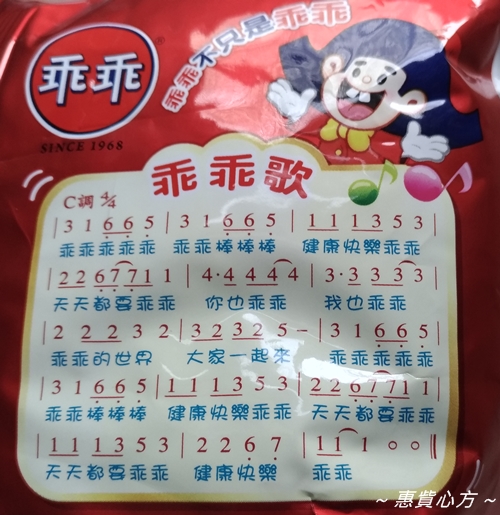 乖乖®
SINCE 1968
乖乖不只是乖乖
乖乖歌
C調 4/4
| 3 1 6 6 5 | 3 1 6 6 5 | 1 1 1 3 5 3 |
乖乖乖乖乖 乖乖棒棒棒 健康快樂乖乖
| 2 2 6 7 7 1 1 | 4· 4 4 4 4 | 3· 3 3 3 3 |
天天都要乖乖 你也乖乖 我也乖乖
| 2 2 2 3 2 | 3 2 3 2 5 – | 3 1 6 6 5 |
乖乖的世界 大家一起來 乖乖乖乖乖
| 3 1 6 6 5 | 1 1 1 3 5 3 | 2 2 6 7 7 1 1 |
乖乖棒棒棒 健康快樂乖乖 天天都要乖乖
| 1 1 1 3 5 3 | 2 2 6 7 | 1 1 1 ○ ○ ‖
天天都要乖乖 健康快樂 乖乖
~ 惠貲心方 ~